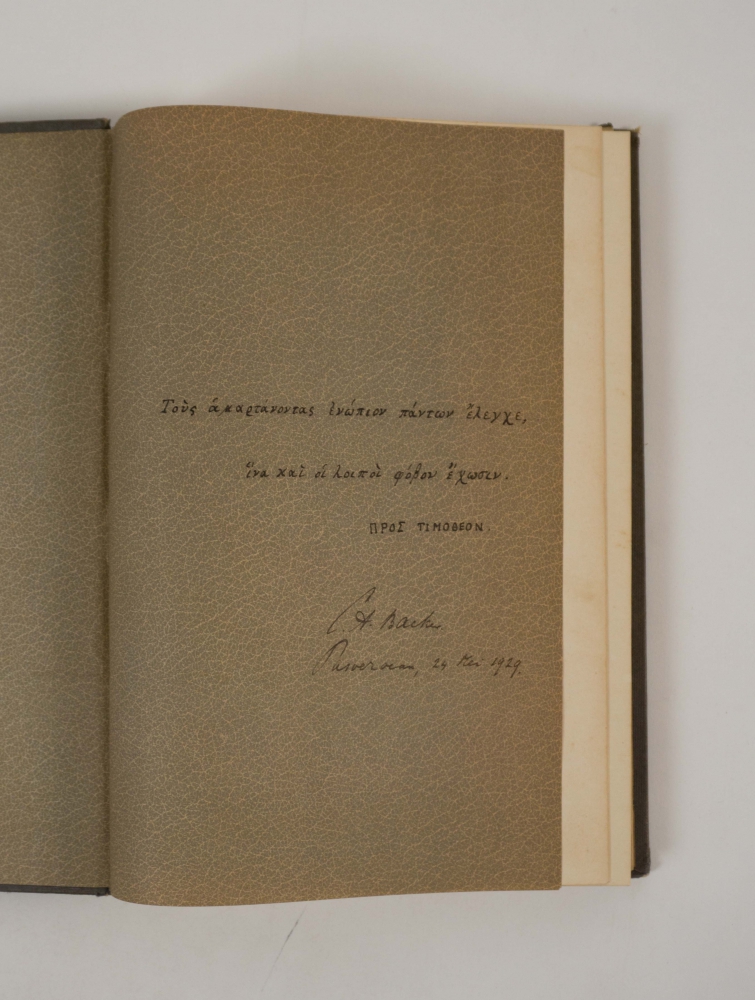 Τοὺς ἁμαρτάνοντας ἐνώπιον πάντων ἔλεγχε,
ἵνα καὶ οἱ λοιποὶ φόβον ἔχωσιν.
ΠΡΟΣ ΤΙΜΟΘΕΟΝ.
C A. Backer
Pasoeroean, 24 Mei 1929.